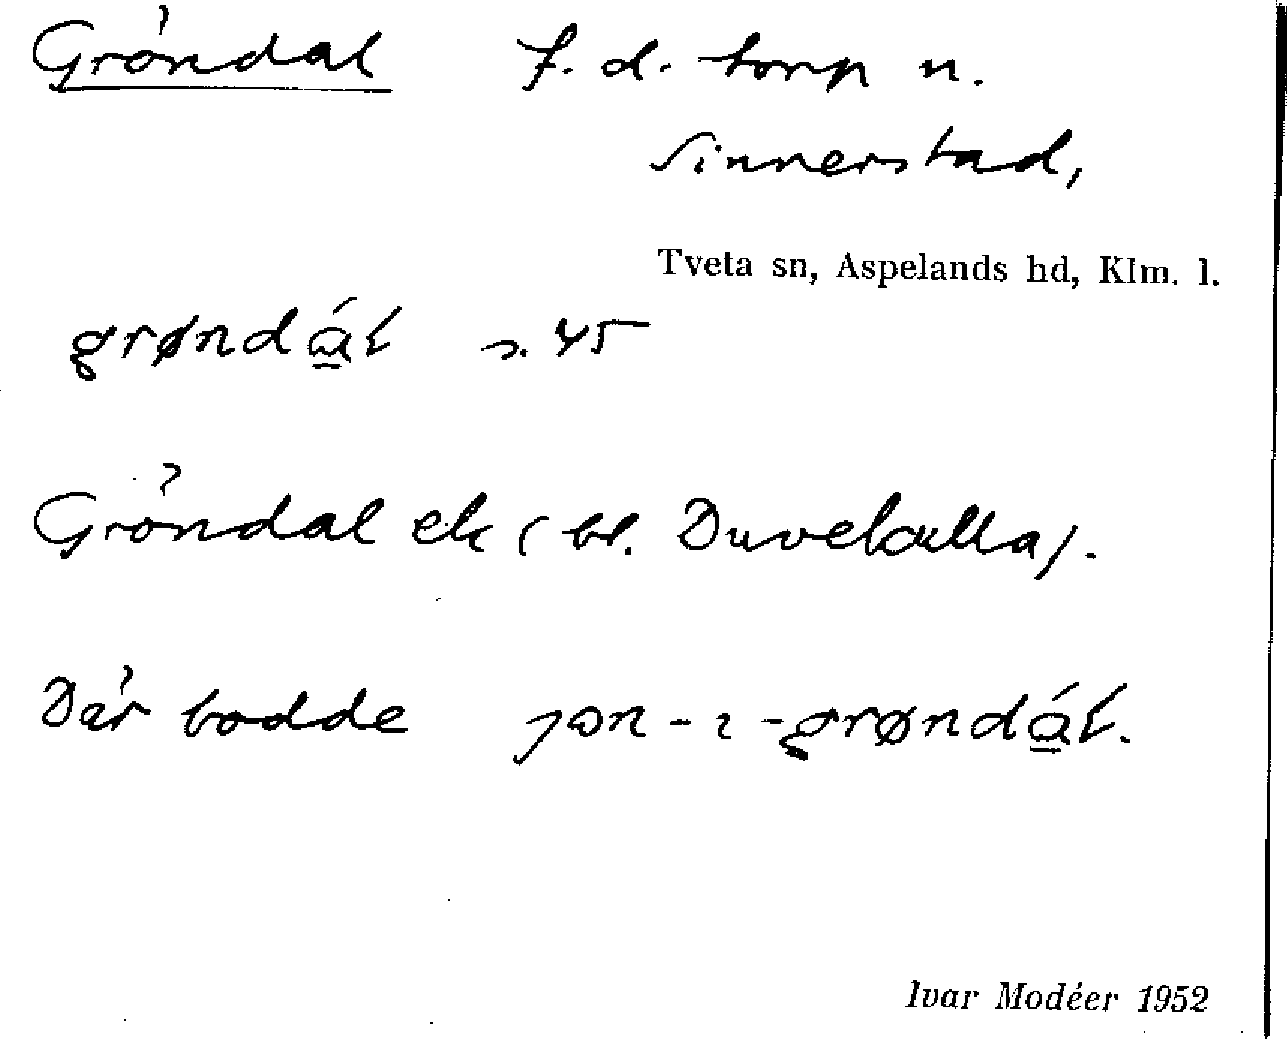 Gröndal f. d. torp u.
Sinnerstad,
Tveta sn, Aspelands hd, Klm. l.
grøndál s. 45
Gröndal ek (bl. Duvekulla).
Där bodde jɔn-ı-grøndál.
Ivar Modéer 1952